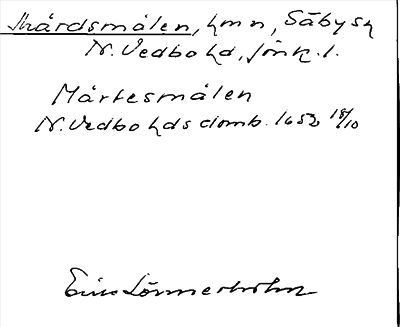 Mårdsmålen, hmn, Säby sn
N. Vedbo hd, Jönk. l.
Mårtesmålen
N. Vedbo hds domb. 1652 18/10
Erik Lönnerholm